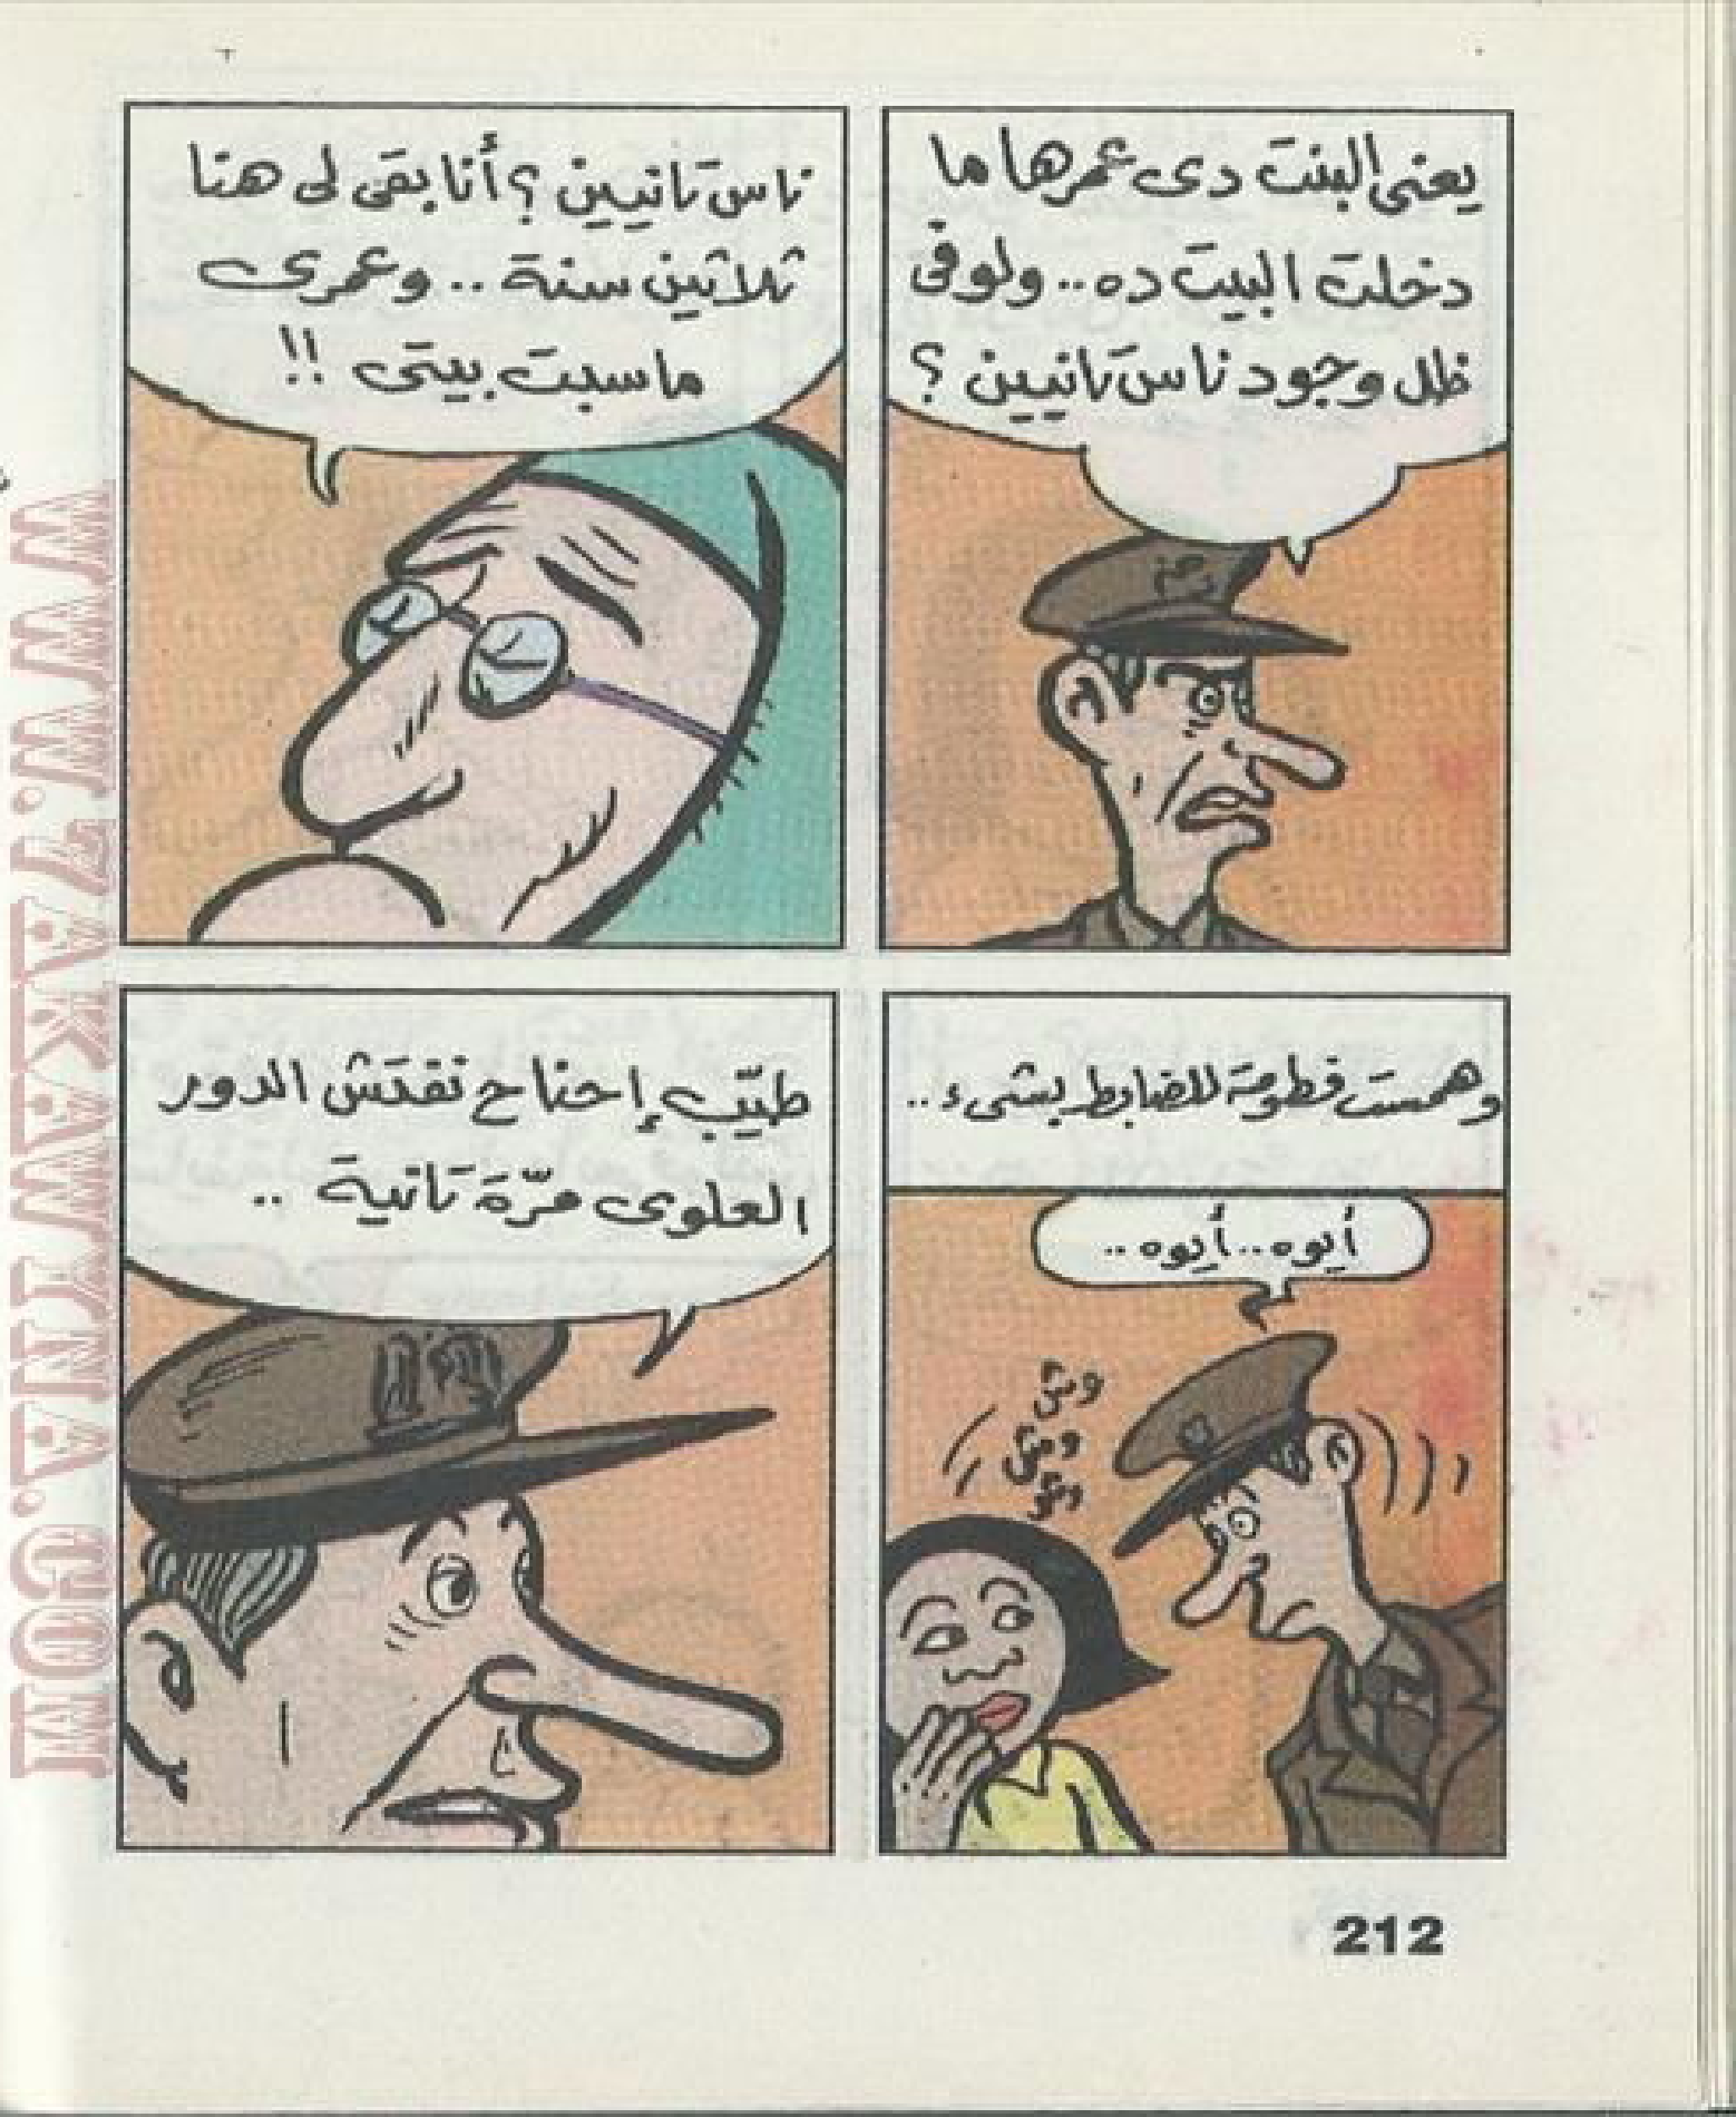 يعنى البنت دى عمرها ما
دخلت البيت ده.. ولو فى
ظل وجود ناس تانيين ؟
ناس تانيين ؟ أنا بقى لى هنا
ثلاثين سنة .. وعمرى
ما سبت بيتى !!
وهمست فطومة للضابط بشىء ..
أيوه.. أيوه ..
وش
وش
وش
طيّب إحنا ح نفتش الدور
العلوى مرّة تانية ..
212
WWW.7AKAWITNA.COM